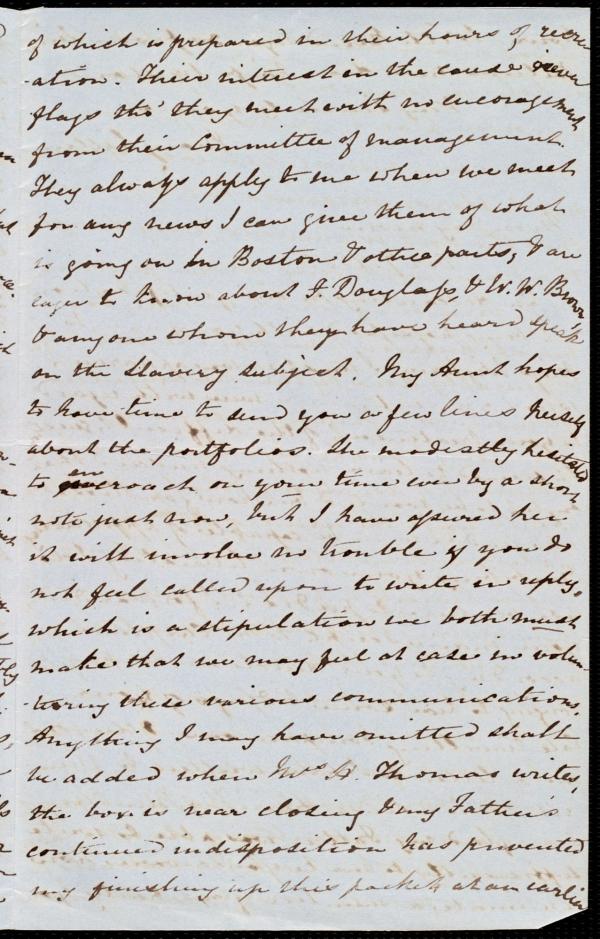 of which is prepared in their hours of recre-
-ation. Their interest in the cause never
flags tho' they meet with no encouragement
from their Committee of management.
They always apply to me when we meet
for any news I can give them of what
is going on in Boston & other parts, & are
eager to know about F. Douglass, & W. W. Brown
& anyone whom they have heard speak
on the Slavery subject. My Aunt hopes
to have time to send you a few lines herself
about the portfolios. She modestly hesitated
to encroach on your time even by a short
note just now, but I have assured her
it will involve no trouble if you do
not feel called upon to write in reply,
which is a stipulation we both must
make that we may feel at ease in volun-
-teering these various communications.
Anything I may have omitted shall
be added when Mrs H. Thomas writes,
the box is near closing & my Father's
continued indisposition has prevented
my finishing up this packet at an earlier